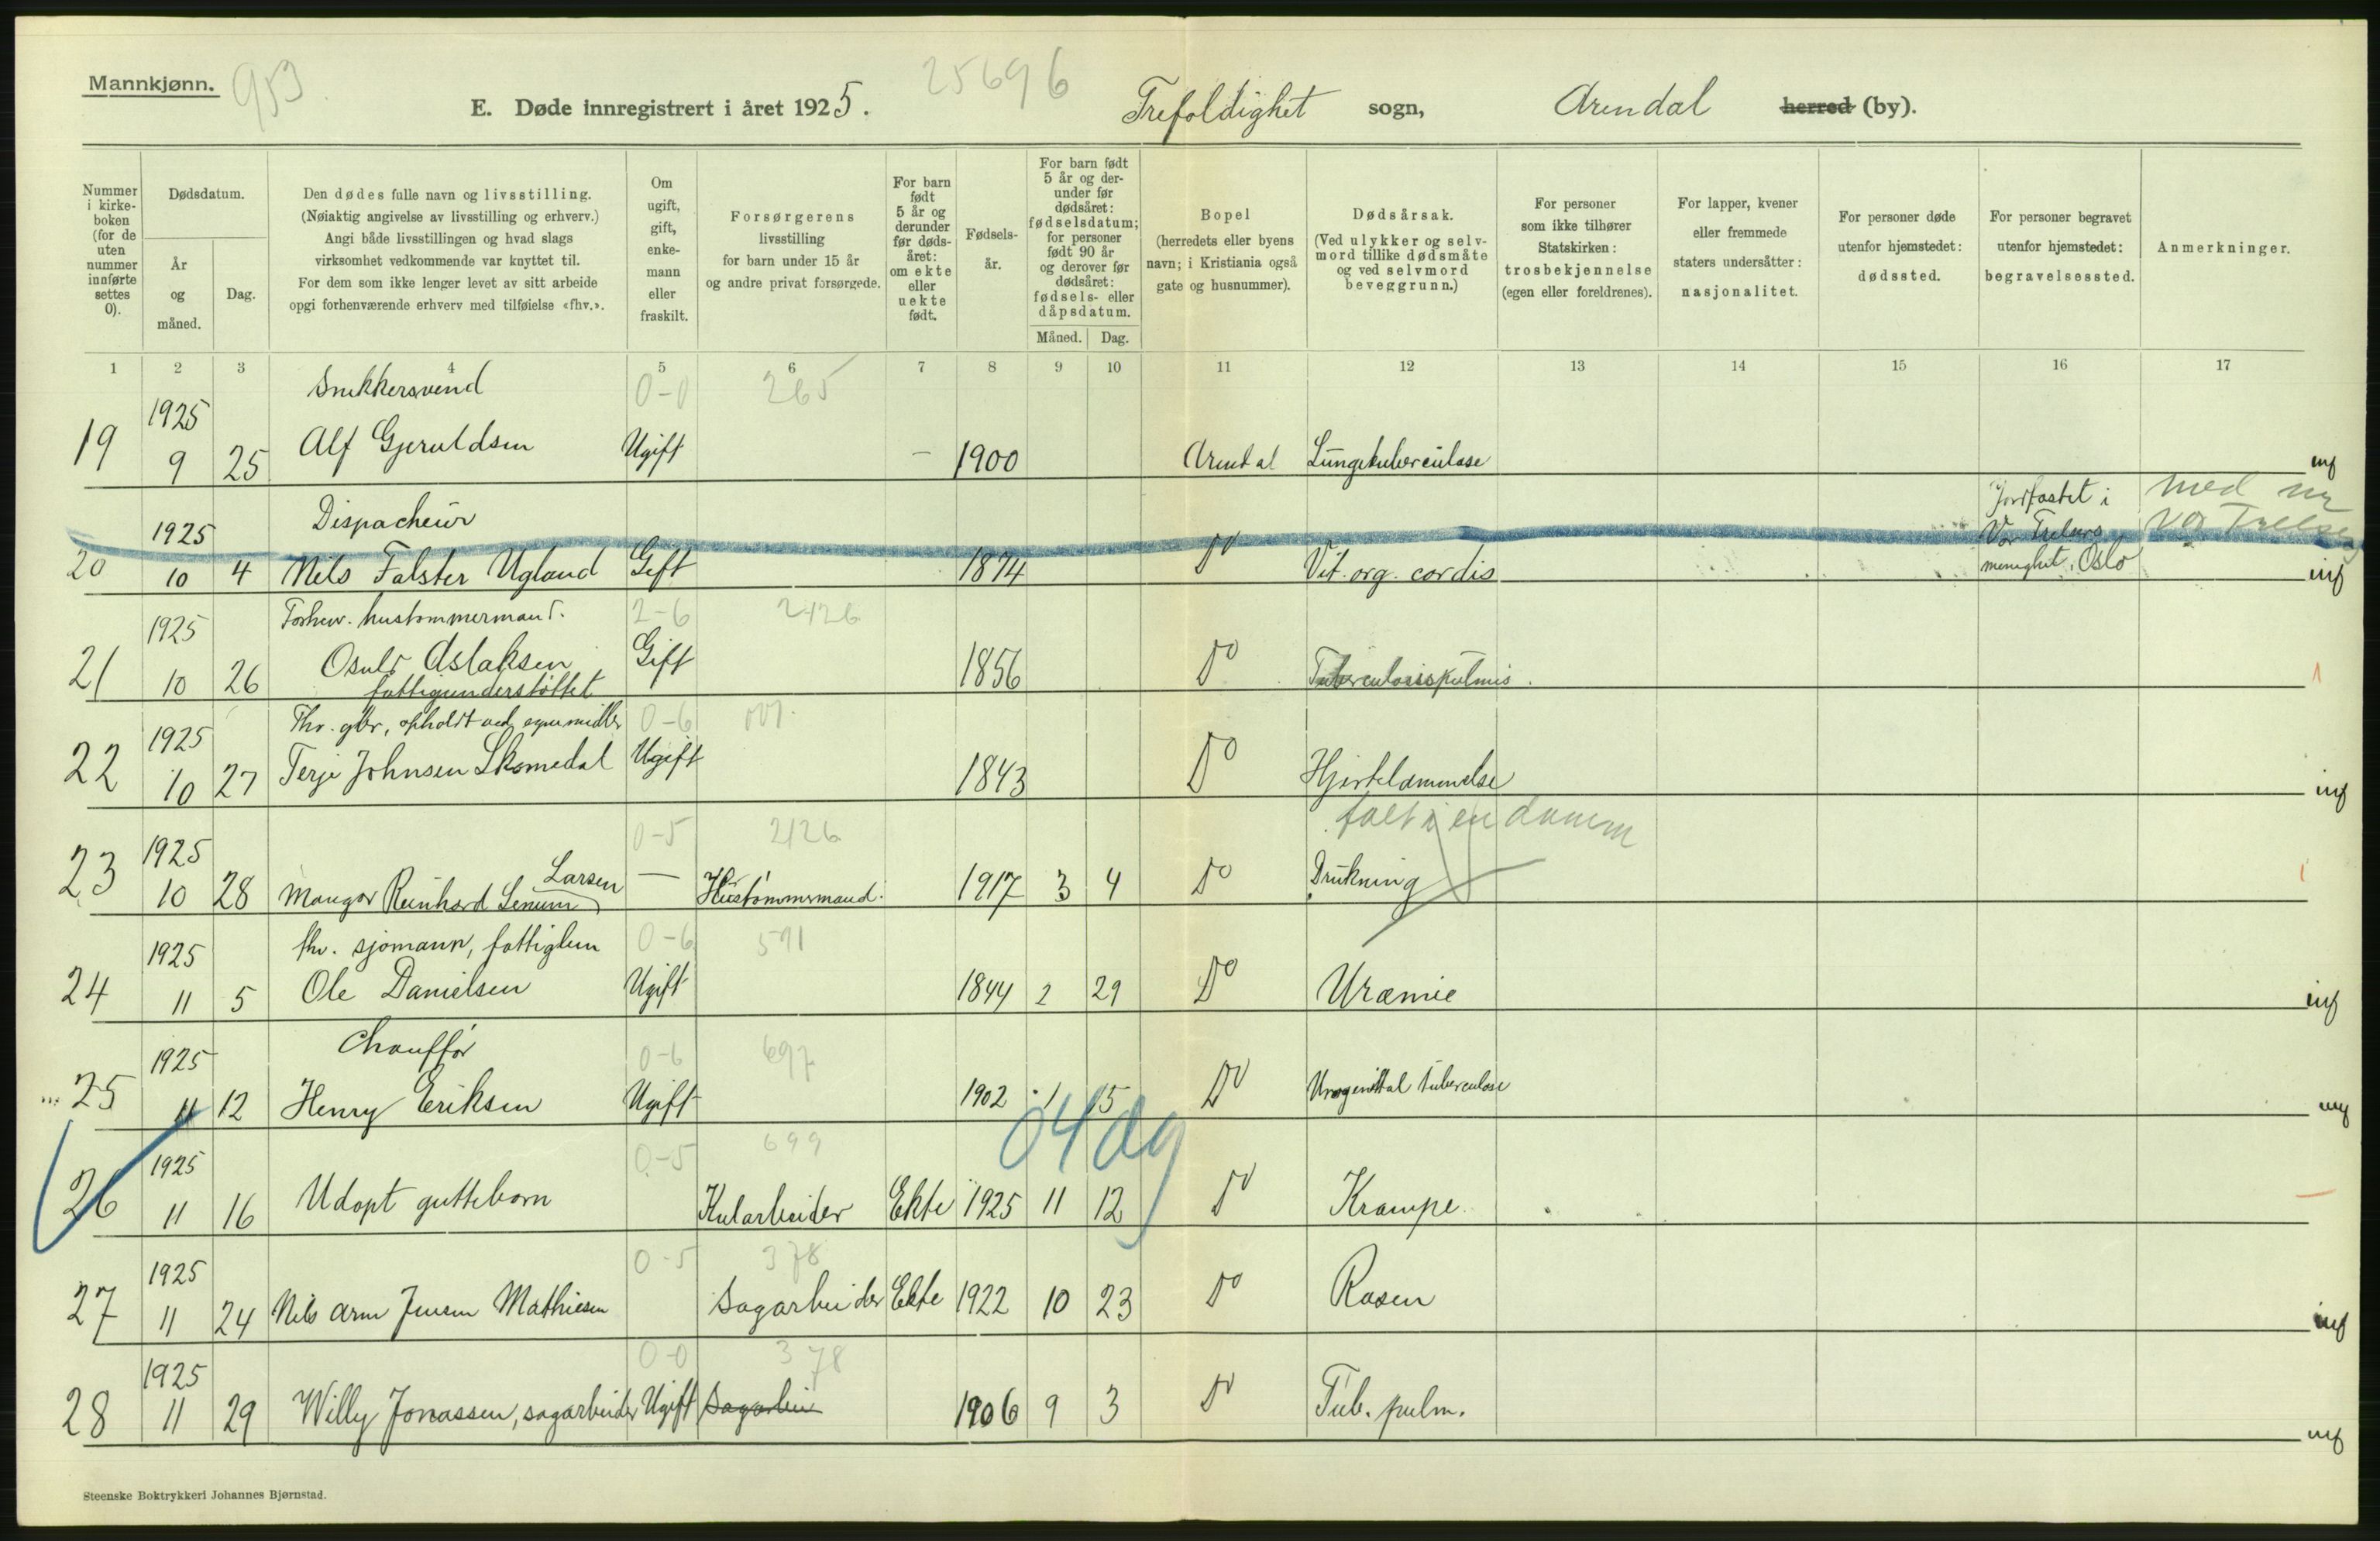 Mannkjønn.
953
25696
E. Døde innregistrert i året 1925. Trefoldighet sogn, Arendal herred (by).
Nummer i kirke-boken (for de uten nummer innførte settes 0).
Dødsdatum.
År og måned.
Dag.
Den dødes fulle navn og livsstilling.
(Nøiaktig angivelse av livsstilling og erhverv.)
Angi både livsstillingen og hvad slags
virksomhet vedkommende var knyttet til.
For dem som ikke lenger levet av sitt arbeide
opgi forhenværende erhverv med tilføielse «fhv.».
Om ugift, gift, enke-mann eller fraskilt.
Forsørgerens
livsstilling
for barn under 15 år
og andre privat forsørgede.
For barn født 5 år og derunder før døds-året: om ekte eller uekte født.
Fødsels-år.
For barn født 5 år og der-under før dødsåret: fødselsdatum; for personer født 90 år og derover før dødsåret: fødsels- eller dåpsdatum.
Måned. Dag.
Bopel
(herredets eller byens
navn; i Kristiania også
gate og husnummer).
Dødsårsak.
(Ved ulykker og selv-
mord tillike dødsmåte
og ved selvmord
beveggrunn.)
For personer
som ikke tilhører
Statskirken:
trosbekjennelse
(egen eller foreldrenes).
For lapper, kvener
eller fremmede
staters undersåtter:
nasjonalitet.
For personer døde
utenfor hjemstedet:
dødssted.
For personer begravet
utenfor hjemstedet:
begravelsessted.
Anmerkninger.
1 2 3 4 5 6 7 8 9 10 11 12 13 14 15 16 17
Snekkersvend 0-0 265
1925
19 9 25 Alf Gjeruldsen Ugift — 1900 Arendal Lungetuberculose
Dispacheur Jordfæstet i med
1925 Vor Frelsers
20 10 4 Nils Falster Ugland Gift 1874 Do Vit. org. cordis menighet, Oslo
Forhenv. hustømmermand. 2-6 2126
1925
21 10 26 Osuld Aslaksen Gift 1856 Do Tuberculosis pulmis. 1
fattigunderstøttet
Fhv. gbr, opholdt ved egne midler 0-6
1925
22 10 27 Terje Johnsen Skomedal Ugift 1843 Do Hjertelammelse
falt i en damm
0-5 2126
1925 Larsen
23 10 28 Mangor Reinhard Senum — Hustømmermand. 1917 3 4 Do Drukning 1
fhv. sjømann, fattiglem 0-6 591
1925
24 11 5 Ole Danielsen Ugift 1844 2 29 Do Uræmie
Chauffør 0-6 697
1925
25 11 12 Henry Eriksen Ugift 1902 1 15 Do Urogenital tuberculose
04dg
0-5 699
1925
26 11 16 Udøpt guttebarn Kularbeider Ekte 1925 11 12 Do Krampe.
0-5 378
1925
27 11 24 Nils Arne Jensen Mathiesen Sagarbeider Ekte 1922 10 23 Do Rosen
0-0 378
1925
28 11 29 Willy Jonassen, sagarbeider Ugift Sagarbei 1906 9 3 Do Tub. pulm.
Steenske Boktrykkeri Johannes Bjørnstad.